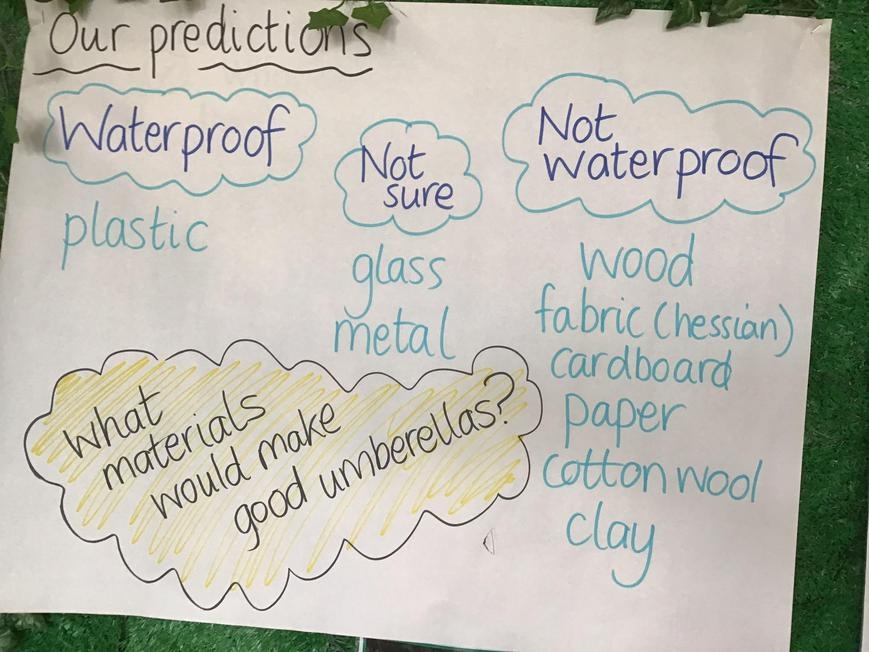 Our predictions
Waterproof
plastic
Not
sure
glass
metal
Not
waterproof
wood
fabric (hessian)
cardboard
paper
cotton wool
clay
What
materials
would make
good umberellas?